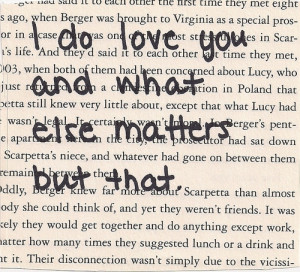 I do love you
and what
else matters
but that.
had said it to each other the first time they met eight
s ago, when Berger was brought to Virginia as a special pros-
or in a case that was one of the most cases in Scar-
's life. And they'd said it to each other the last time they met,
003, when both of them had been concerned about Lucy, who
just from a operation in Poland that
petta still knew very little about, except that what Lucy had
wasn't legal. It certainly wasn't Berger's pent-
e apartment in the city, the prosecutor had sat down
Scarpetta's niece, and whatever had gone on between them
remained between them.
Oddly, Berger knew far more about Scarpetta than almost
ody she could think of, and yet they weren't friends. It was
kely they would get together and do anything except work,
atter how many times they suggested lunch or a drink and
nt it. Their disconnection wasn't simply due to the vicissi-